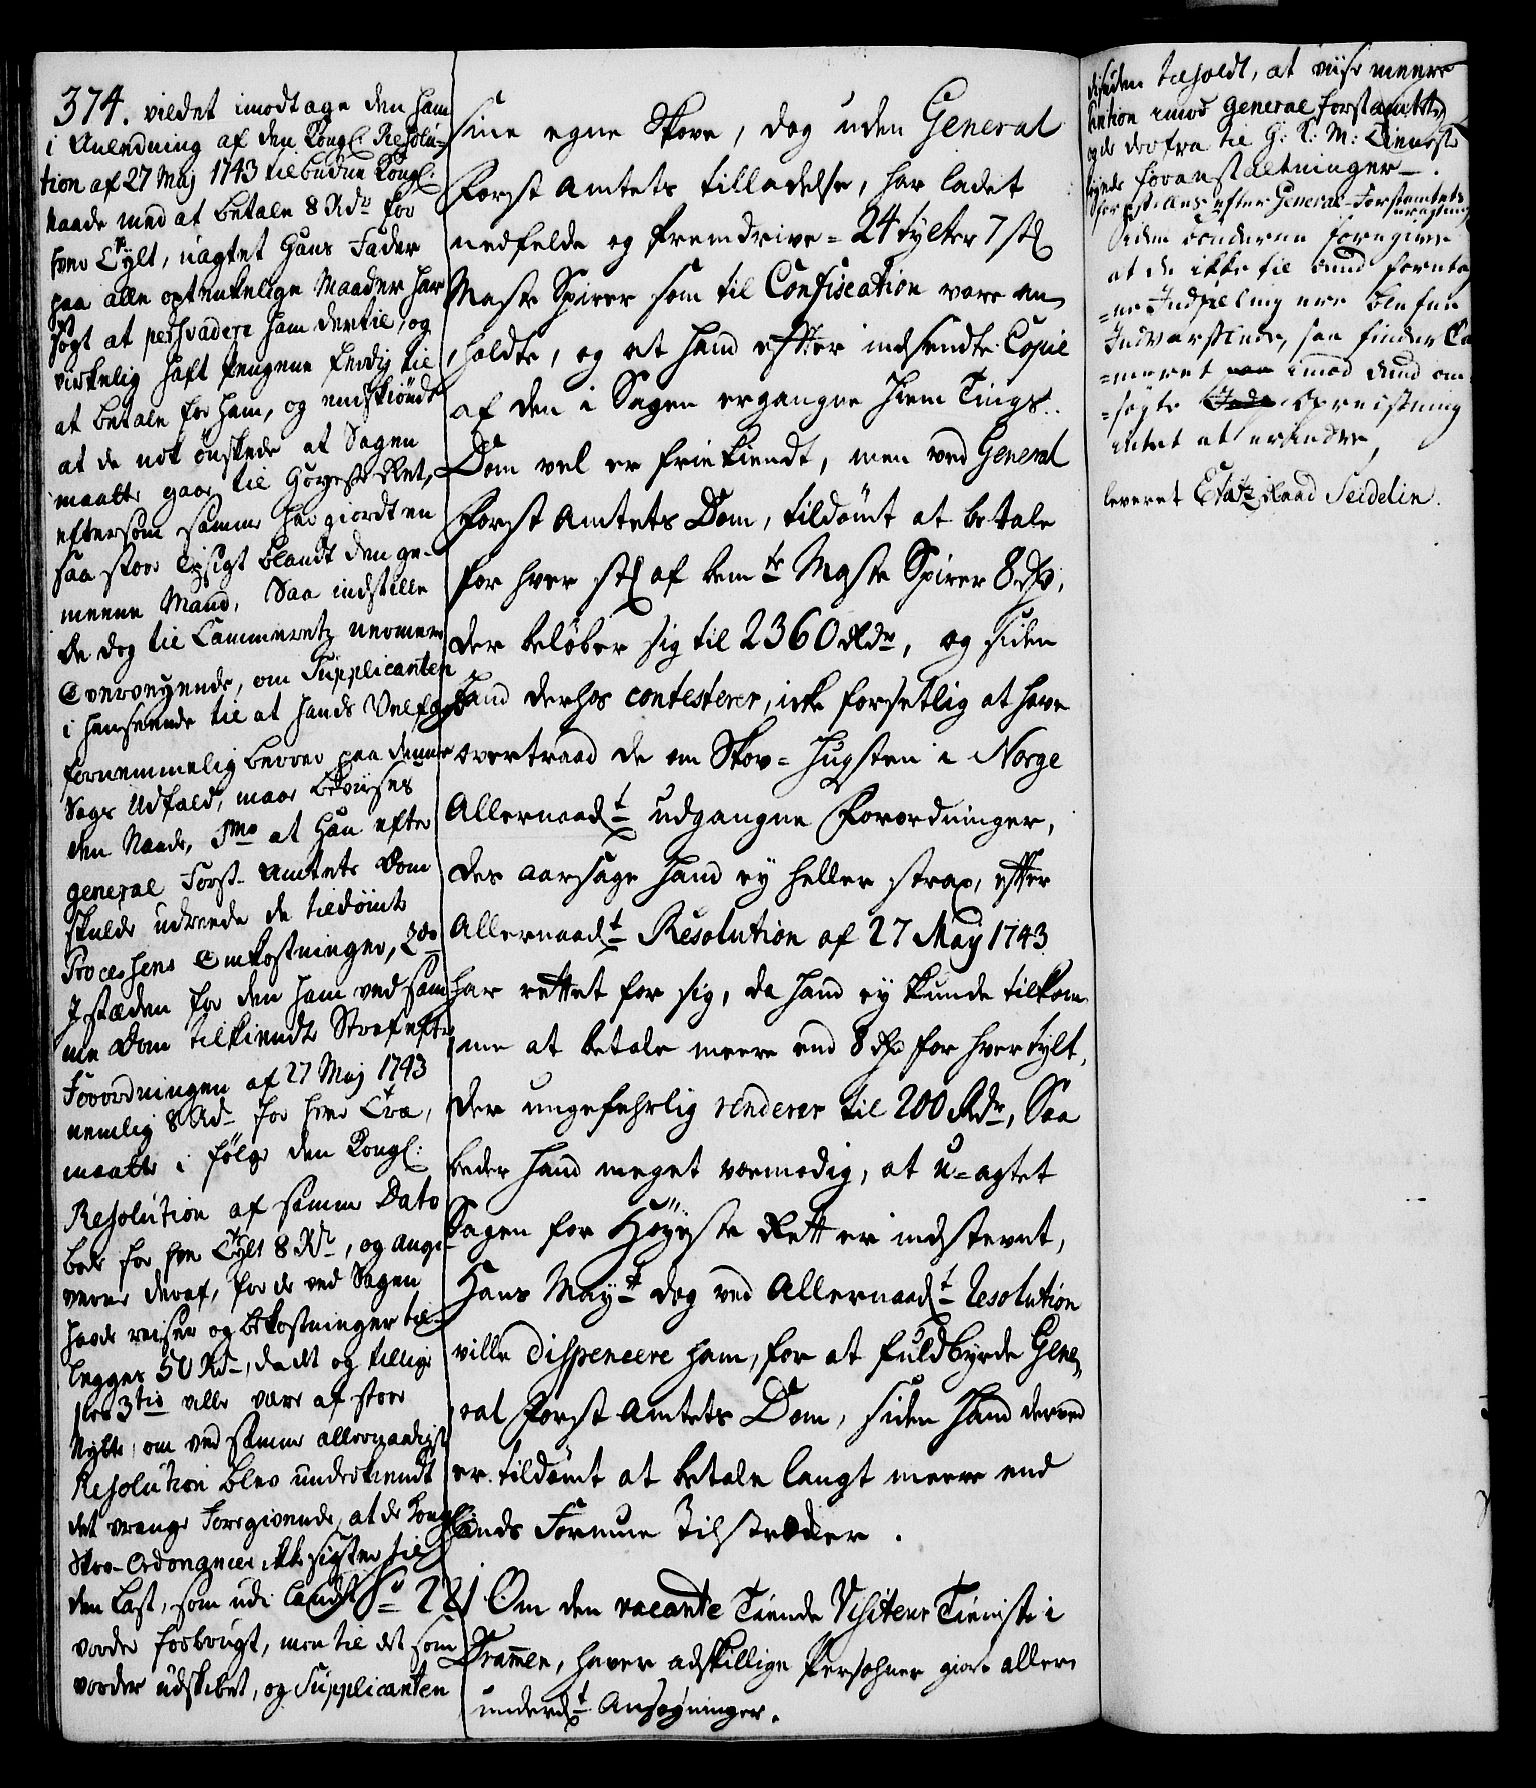 374. vildet imodtage den ham
i Anledning af den Kongl: Resolu-
tion af 27 Maj 1743 tilbudne Kongl:
Naade med at betale 8 Rdr for
hver Tylt, uagtet Hans Fader
paa alle optenkelige Maader har
søgt at persvadere ham dertil, og
virkelig haft Pengene ferdig til
at betale for ham, og endskiøndt
at de nok ønskede at Sagen
maatte gaae til Høyeste Ret,
eftersom samme har giordt en
saa stor Opsigt blandt den ge-
meene Mand, Saa indstille
De dog til Cammeretz nermere
Overveyende, om Supplicanten
i henseende til at hands Velfærd
fornemmelig beroer paa denne
Sags Udfald, maae beviises
den Naade, 1mo at Han efter
General Forst-Amtets Dom
skulde udreede de tildømte
Processens Omkostninger, 2do
I stæden for den ham ved sam-
me Dom tilkiendte Straf efter
Forordningen af 27 Maj 1743
nemlig 8 Rdr for hver Træ,
maatte i følge den Kongl:
Resolution af samme Dato
bøde for hver Tylt 8 Rdr, og Angi-
verne deraf, for de ved Sagen
hafde reiser og bekostninger til-
legges 50 Rdr, da det og tillige
for 3tio ville være af stor
Nytte, om ved samme allernaadigst
Resolution blev underkiendt
det vrange Foregivende, at de Kongl:
Skov-Ordonancer ikke sigter til
den Last, som udi Landet
vorder forbrugt, men til det som
vorder udskibet, og Supplicanten
sine egne Skove, dog uden General
Forst Amtets tilladelse, har ladet
nedfelde og fremdrive = 24 tylter 7 stk
Maste Spirer som til Confiscation vare an-
holdte, og at hand efter indsendte Copie
af den i Sagen ergangne Hiem Tings
Dom vel er friekiendt, men ved General
Forst Amtets Dom, tildømt at betale
for hver stk af bemte Maste Spirer 8 Rdr,
der beløber sig til 2360 Rdr, og siden
Hand derhos contesterer, icke forsetlig at have
overtraad de om Skov-Hugsten i Norge
Allernaadt udgangne Forordninger,
des aarsage hand ey heller strax, efter
Allernaadt Resolution af 27 May 1743
har rettet for sig, da hand ey kunde tilkom-
me at betale meere end 8 Rdr for hver tylt,
der ungefehrlig renderer til 200 Rdr, Saa
beder hand meget vemodig, at u-agtet
Sagen for Høyeste Rett er indstevnt,
Hans Mayt dog ved Allernaadt Resolution
ville dispencere ham, for at fuldbyrde Gene-
ral Forst Amtets Dom, siden hand derved
er tildømt at betale langt meere end
hands Formue tilstrækker.
No 221 Om den vacante Tiende Visiteur Tieniste i
Drammen, haver adskillige Persohner giort aller-
underdt Ansøgninger.
desuden tilholdt, at viise meere
imod General Forstamtet
og de derfra til H: K: M: Tieneste
foranstaltninger.
efter General-Forstamtets
Siden Bønderne foregiver
at de ikke til
Indvaaanere, saa finder Ca-
meret imod om
søgte Opreisning
intet at erindre,
leveret Etatz Raad Seidelin.